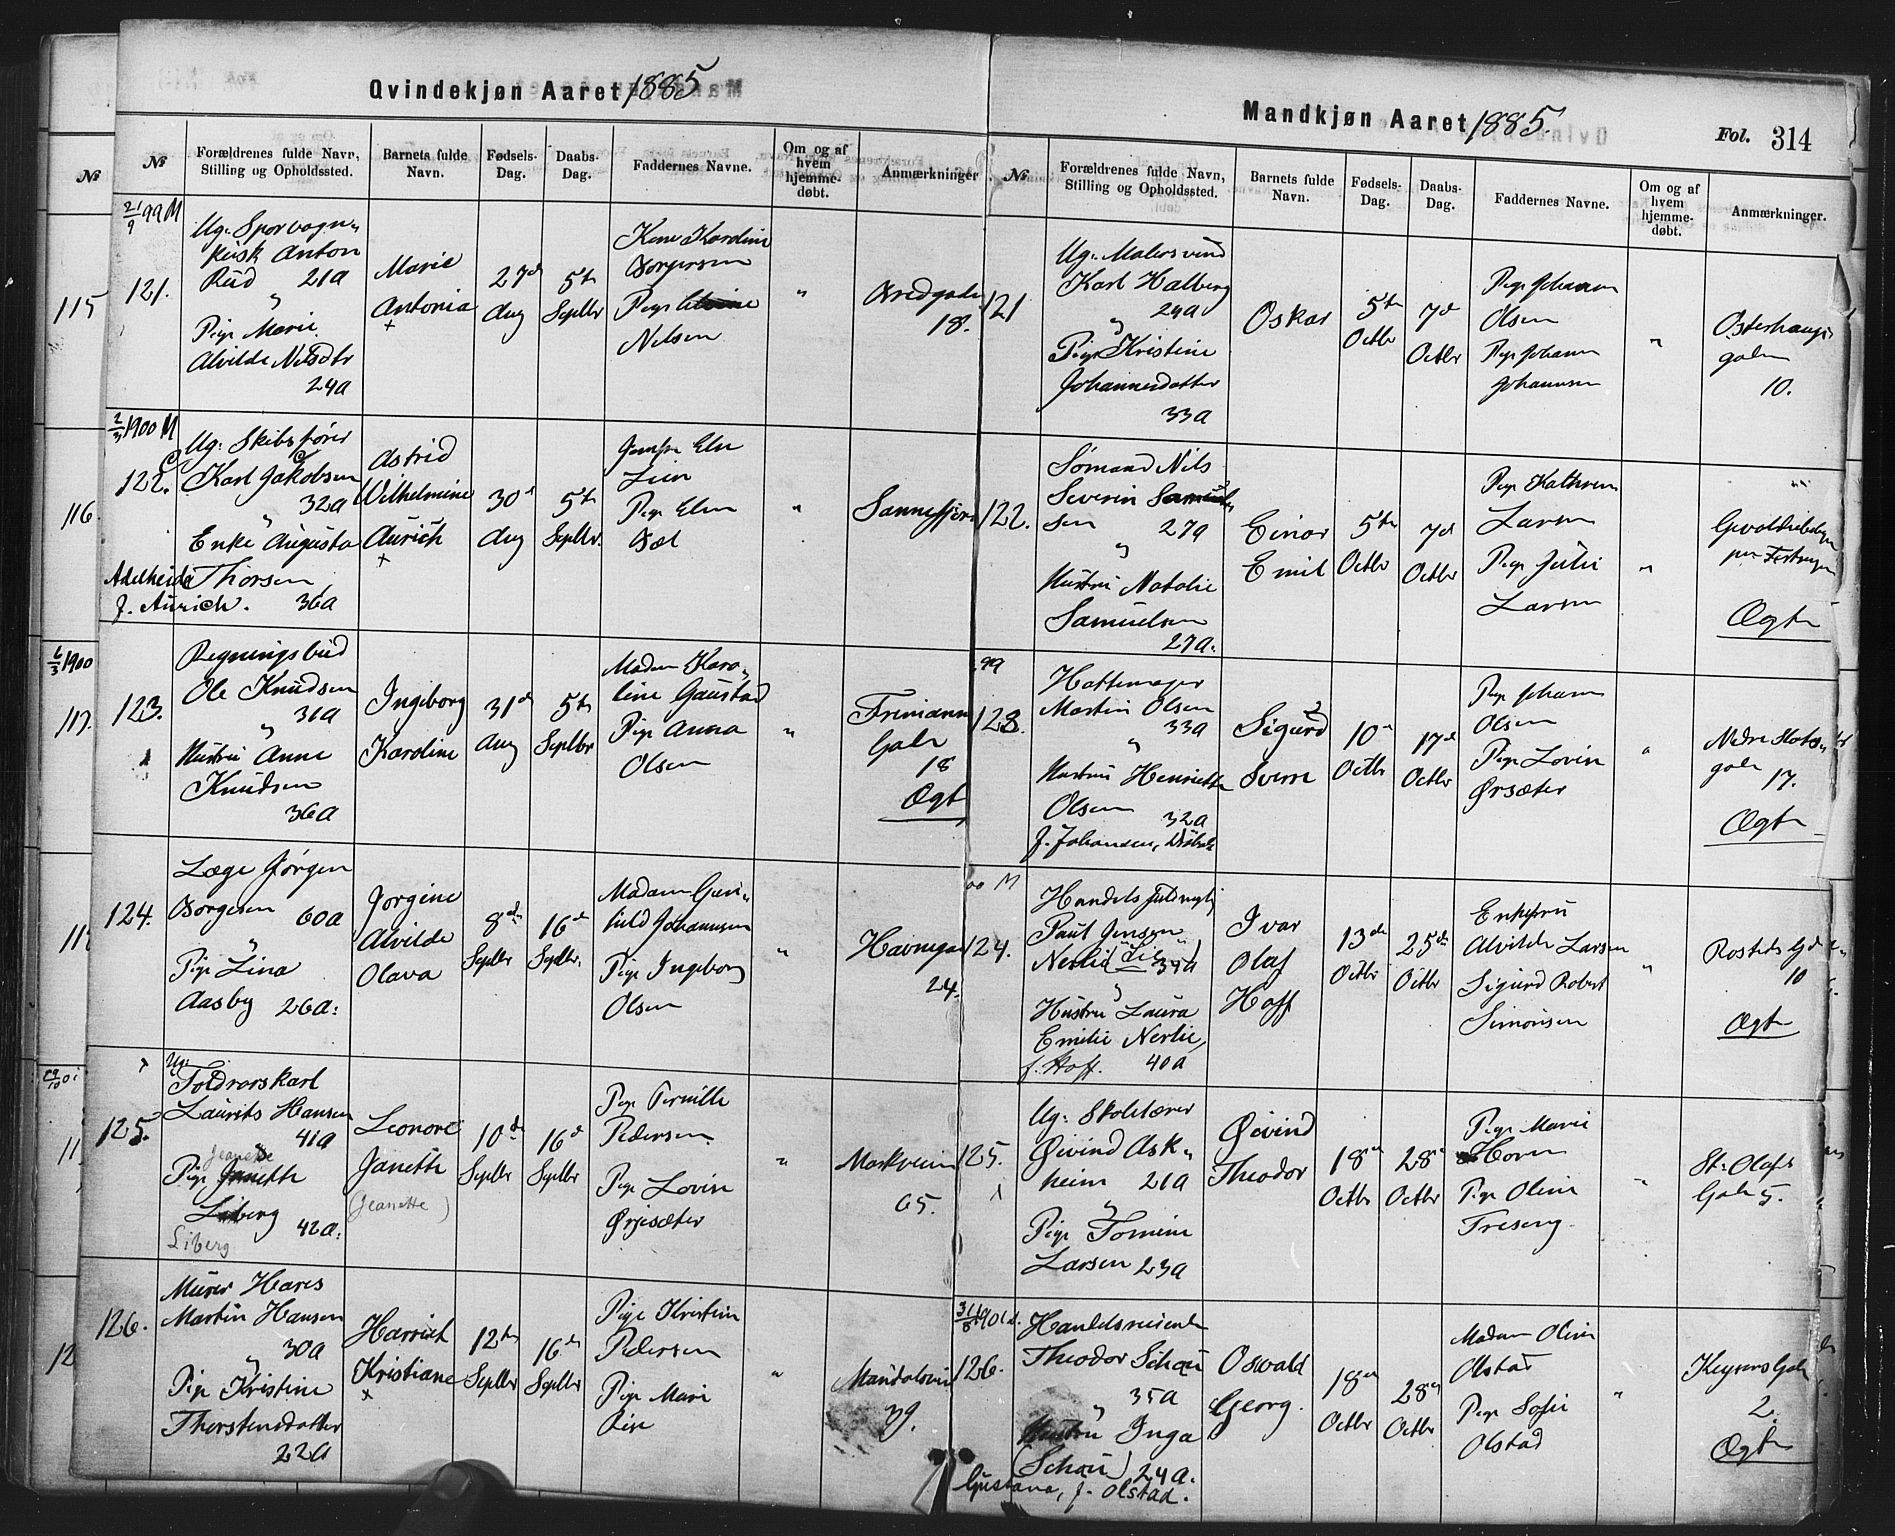 Qvindekjøn Aaret 1885
№
Forældrenes fulde Navn,
Stilling og Opholdssted.
Barnets fulde
Navn.
Fødsels-
Dag.
Daabs-
Dag.
Faddernes Navne.
Om og af
hvem
hjemme-
døbt.
Anmærkninger
№
115
116.
117.
21/9 99 M
121.
Ug: Sporvogn„
kusk Anton
Rud 21a
„
Pige Marie
Alvilde Nilsdtr
24a
Marie
Antonia
+
27d
Aug
5te
Septbr
Kone Karoline
Borgersen
Pige
Nelsen
„
Bredgade
18.
2/3 1900 M
122.
Ug: Skibsfører
Karl Jakobsen
32a
„
Enke Augusta
Adelheide Thorsen
f. Aurich. 36a
Astrid
Wilhelmine
Aurich
+
30d
Aug
5te
Septbr.
Jomfr Elen
Lien
Pige Elen
„
6/3 1900
123.
Regningsbud
Ole Knudsen
31a
„
Hustru Anne
Knudsen
36a
Ingeborg
Karoline
31d
Aug
5te
Septbr
Madam Karo„
line Gaustad
Pige Anna
Olsen
„
Frimanns
Gade
18
Ægte
124.
Læge Jørgen
Borgesen 60a
„
Pige Lina
Aasby 26a:
Jørgine
Alvilde
Olava
8de
Septbr
16d
Septbr.
Madam Gun„
hild Johannesen
Pige Ingeborg
Olsen
„
Havnegad
24.
125.
Ug:
Toldrorskarl
Laurits Hansen
41a
Jeanette
Pige Janette
Liberg
42a:
Liberg
Leonore
Janette
(Jeanette)
10de
Septbr
16d
Septbr
Pige Pernille
Pedersen
Pige Lovise
Ørjesæter
„
Markveien
65.
126.
Murer Hans
Martin Hansen
30a
„
Pige Kristine
Thorstensdatter
22a
Harriet
Kristiane
+
12te
Septbr
16de
Septbr
Pige Kristine
Pedersen
Pige Mari
„
Mandalsvei
39.
Mandkjøn Aaret 1885.
Fol. 314
№
Forældrenes fulde Navn,
Stilling og Opholdssted.
Barnets fulde
Navn.
Fødsels-
Dag.
Daabs-
Dag.
Faddernes Navne.
Om og af
hvem
hjemme-
døbt.
Anmærkninger.
121
Ug: Malersvend
Karl Halberg
24a
„
Pige Kristine
Johannesdatter
33a
Oskar
5te
Octbr
7d
Octbr
Pige Johanne
Olsen
Pige Johanne
Johannesen
„
Osterhaugs
gaden
10.
122.
Sømand Nils
Severin Samuel„
sen 27a
„
Hustru Natalie
Samuelsen
27a.
Einar
Emil
5te
Octbr
7d
Octbr
Pige Kathrine
Larsen
Pige Julie
Larsen
„
Ægte
99
123.
Hattemager
Martin Olsen
33a
„
Hustru Henriette
Olsen 32a
f. Johansen,
Sigurd
Sverre
10d
Octbr
17d
Octbr
Pige Johanne
Olsen
Pige Lovise
Ørsæter
„
Nedre Slots„
gade 17.
Ægte
00 M
124.
Handelsfuldmægtig
Paul Jensen
Nerlie 39a
„
Hustru Laura
Emilie Nerlie,
f. Hoff. 40a
Ivar
Olaf
Hoff
13de
Octbr
25de
Octbr
Enkefru
Alvilde Larsen
Sigurd Robert
Simonsen
„
Rosteds Gd
10
Ægte
125.
Ug: Skolelærer
Øivind Ask„
heim 21a
„
Pige Tomine
Larsen 23a
Øivind
Theodor
18d
Octbr
28d
Octbr
Pige Marie
Horn
Pige Oline
„
St: Olafs
Gade 5.
126.
Handelsreisende
Theodor Schou
35a
„
Hustru Inga
(Schou) 24a.
Gustava, f. Olstad.
Oswald
Georg.
18d
Octbr
28d
Octbr
Madam Oline
Olstad
Pige Sofie
Olstad
„
Keysers Gade
2.
Ægte